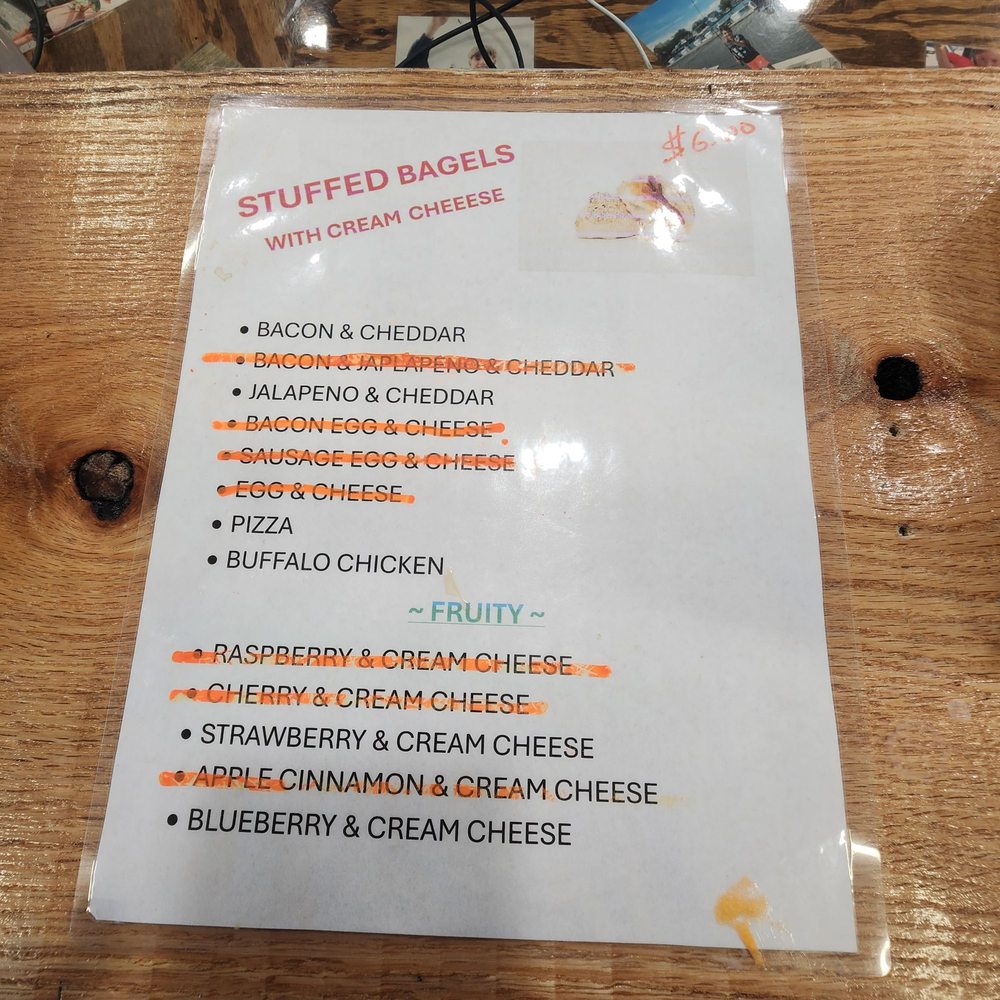 $6.00
STUFFED BAGELS
WITH CREAM CHEEESE
• BACON & CHEDDAR
• BACON & JAPLAPENO & CHEDDAR
• JALAPENO & CHEDDAR
• BACON EGG & CHEESE
• SAUSAGE EGG & CHEESE
• EGG & CHEESE
• PIZZA
• BUFFALO CHICKEN
~ FRUITY ~
• RASPBERRY & CREAM CHEESE
• CHERRY & CREAM CHEESE
• STRAWBERRY & CREAM CHEESE
• APPLE CINNAMON & CREAM CHEESE
• BLUEBERRY & CREAM CHEESE